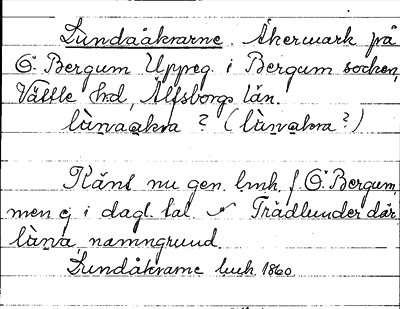 Lundaåkrarne. Åkermark på
Ö. Bergum Uppeg. i Bergum socken,
Vättle hd, Älfsborgs län.
làṇaakra ? (làṇakra?)
Känt nu gen. lmh. f Ö. Bergum,
men ej i dagl. tal. Trädlunder där
làṇa, namngrund.
Lundåkrarne lmh 1860